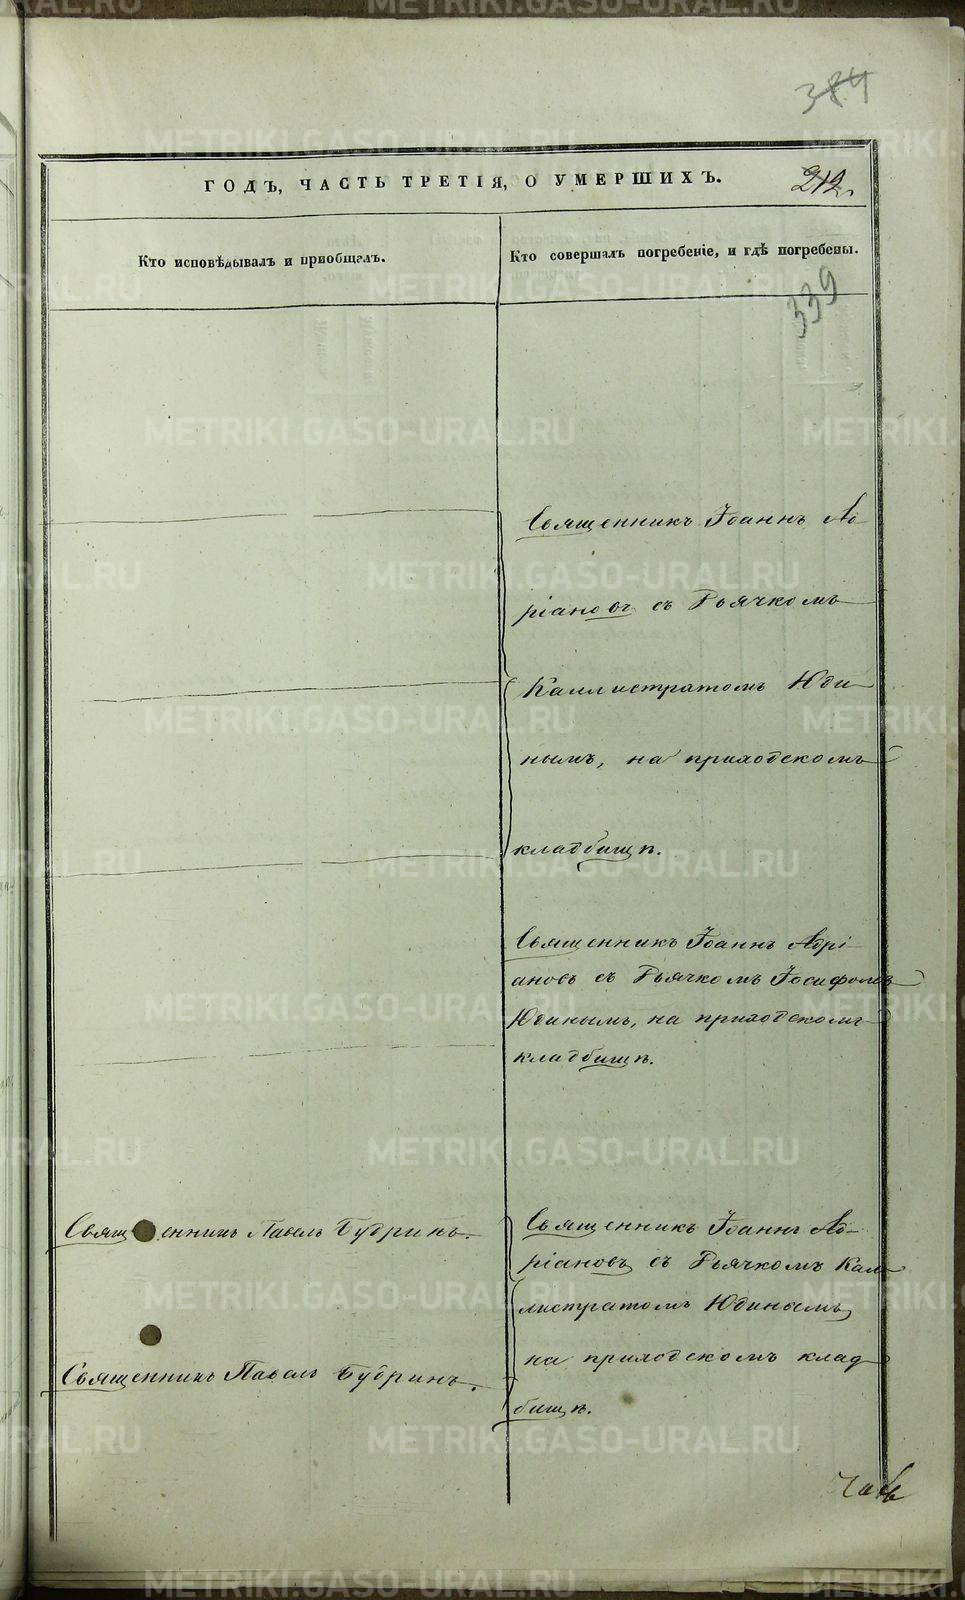 384
ГОДЪ, ЧАСТЬ ТРЕТІЯ, О УМЕРШИХЪ.
212.
Кто исповѣдывалъ и пріобщалъ.
Кто совершалъ погребеніе, и гдѣ погребены.
339
Священникъ Іоаннъ Ад
ріановъ съ Дьячкомъ
Каллистратомъ Юди
нымъ, на приходскомъ
кладбищѣ.
Священникъ Іоаннъ Адрі
ановъ съ Дьячкомъ Іосифомъ
Юдинымъ, на приходскомъ
кладбищѣ.
Священникъ Павелъ Будринъ.
Священникъ Павелъ Будринъ.
Священникъ Іоаннъ Ад-
ріановъ съ Дьячкомъ Кал
листратомъ Юдинымъ,
на приходскомъ клад
бищѣ.
METRIKI.GASO-URAL.RU